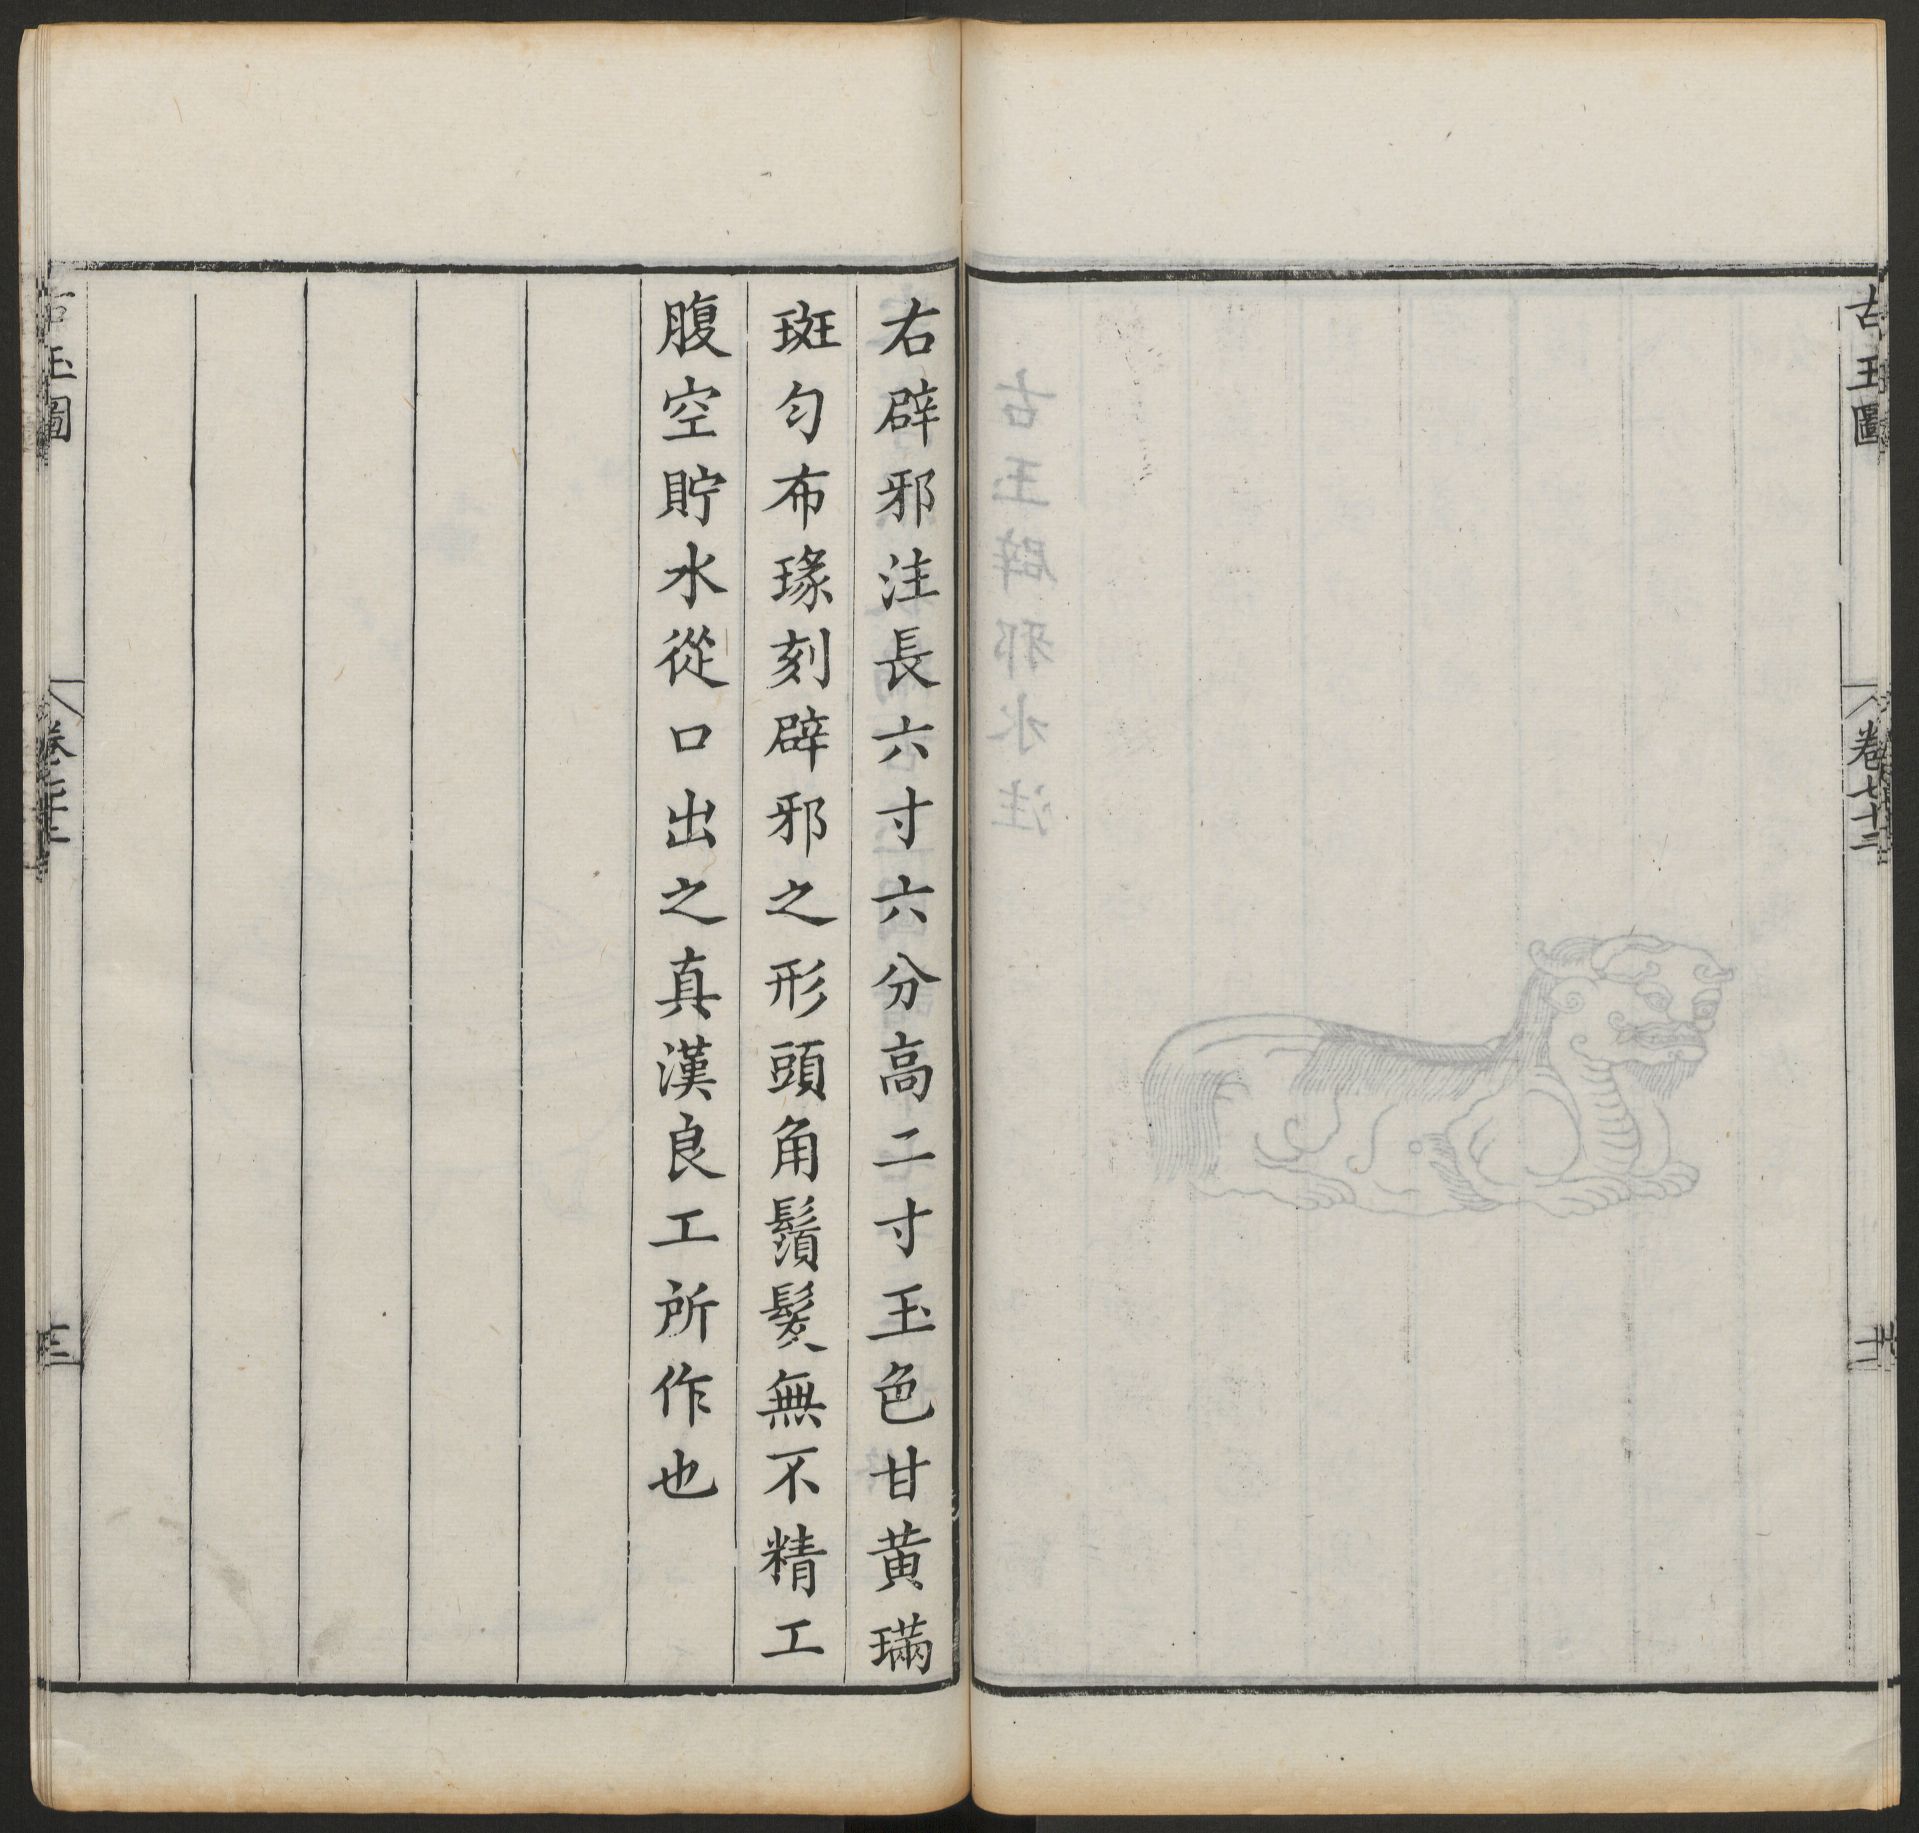 古玉圖
卷七十二
古玉辟邪水注
右辟邪注長六寸六分高二寸玉色甘黄璊
斑勻布瑑刻辟邪之形頭角鬚髮無不精工
腹空貯水從口出之真漢良工所作也
古玉圖